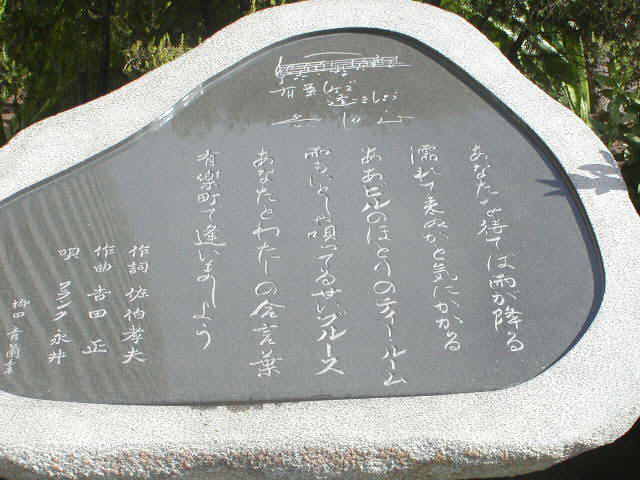 有楽町で
逢いましょう
あなたを待てば雨が降る
濡れて来ぬかと気にかかる
ああビルのほとりのティールーム
雨もいとしや唄ってる甘いブルース
あなたとわたしの合言葉
有樂町で逢いましょう
作詞 佐伯孝夫
作曲 吉田 正
唄 フランク永井